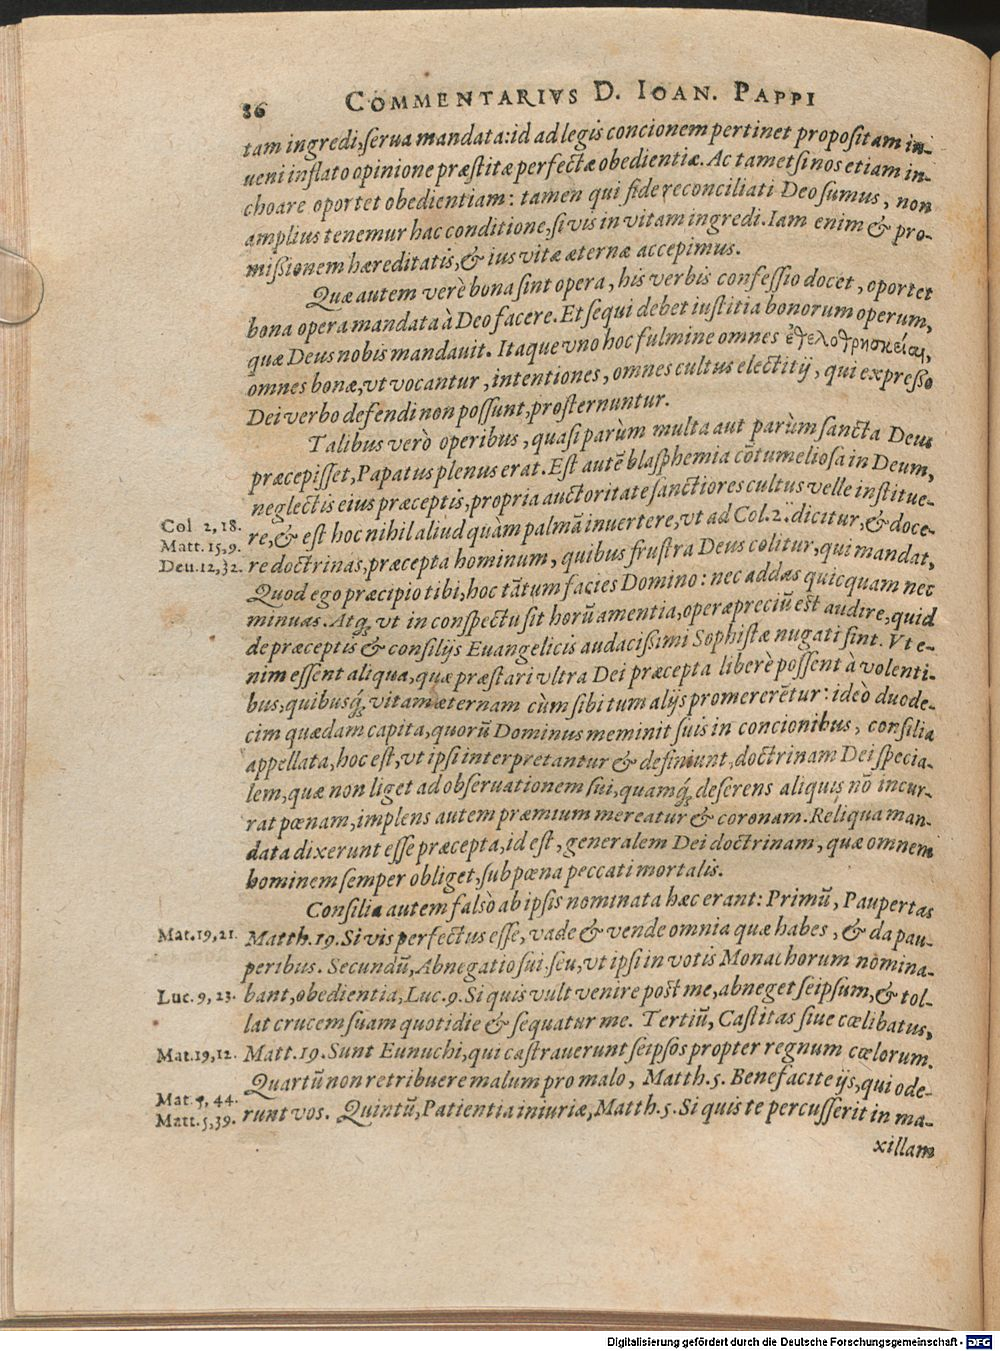 86 COMMENTARIVS D. IOAN. PAPPI
tam ingredi, serua mandata: id ad legis concionem pertinet propositam iu-
ueni inflato opinione præstitæ perfectæ obedientiæ. Ac tametsi nos etiam in-
choare oportet obedientiam: tamen qui fide reconciliati Deo sumus, non
amplius tenemur hac conditione, si vis in vitam ingredi. Iam enim & pro-
missionem hæreditatis, & ius vitæ æternæ accepimus.
Quæ autem verè bona sint opera, his verbis confessio docet, oportet
bona opera mandata à Deo facere. Et sequi debet iustitia bonorum operum,
quæ Deus nobis mandauit. Itaque vno hoc fulmine omnes ἐθελοθρησκείαι,
omnes bonæ, vt vocantur, intentiones, omnes cultus electitij, qui expresso
Dei verbo defendi non possunt, prosternuntur.
Talibus verò operibus, quasi parùm multa aut parùm sancta Deus
præcepisset, Papatus plenus erat. Est autē blasphemia cōtumeliosa in Deum,
neglectis eius præceptis, propria auctoritate sanctiores cultus velle institue-
Col 2, 18. re, & est hoc nihil aliud quàm palmā inuertere, vt ad Col. 2. dicitur, & doce-
Matt. 15, 9. re doctrinas, præcepta hominum, quibus frustra Deus colitur, qui mandat,
Deu. 12, 32. Quod ego præcipio tibi, hoc tātum facies Domino: nec addas quicquam nec
minuas. Atq́; vt in conspectu sit horū amentia, operæpreciū est audire, quid
de præceptis & consilijs Euangelicis audacissimi Sophistæ nugati sint. Vt e-
nim essent aliqua, quæ præstari vltra Dei præcepta liberè possent à volenti-
bus, quibusq́; vitam æternam cùm sibi tum alijs promererētur: ideò duode-
cim quædam capita, quorū Dominus meminit suis in concionibus, consilia
appellata, hoc est, vt ipsi interpretantur & definiunt, doctrinam Dei specia-
lem, quæ non liget ad obseruationem sui, quamq́; deserens aliquis nō incur-
rat pœnam, implens autem præmium mereatur & coronam. Reliqua man-
data dixerunt esse præcepta, id est, generalem Dei doctrinam, quæ omnem
hominem semper obliget, sub pœna peccati mortalis.
Consilia autem falsò ab ipsis nominata hæc erant: Primū, Paupertas
Mat. 19, 21. Matth. 19. Si vis perfectus esse, vade & vende omnia quæ habes, & da pau-
peribus. Secundū, Abnegatio sui seu, vt ipsi in votis Monachorum nomina-
Luc. 9, 23. bant, obedientia, Luc. 9. Si quis vult venire post me, abneget seipsum, & tol-
lat crucem suam quotidie & sequatur me. Tertiū, Castitas siue cœlibatus,
Mat. 19, 12. Matt. 19. Sunt Eunuchi, qui castrauerunt seipsos propter regnum cœlorum.
Quartū non retribuere malum pro malo, Matth. 5. Benefacite ijs, qui ode-
Mat. 5, 44.
Matt. 5, 39. runt vos. Quintū, Patientia iniuriæ, Matth. 5. Si quis te percusserit in ma-
xillam
Digitalisierung gefördert durch die Deutsche Forschungsgemeinschaft - DFG